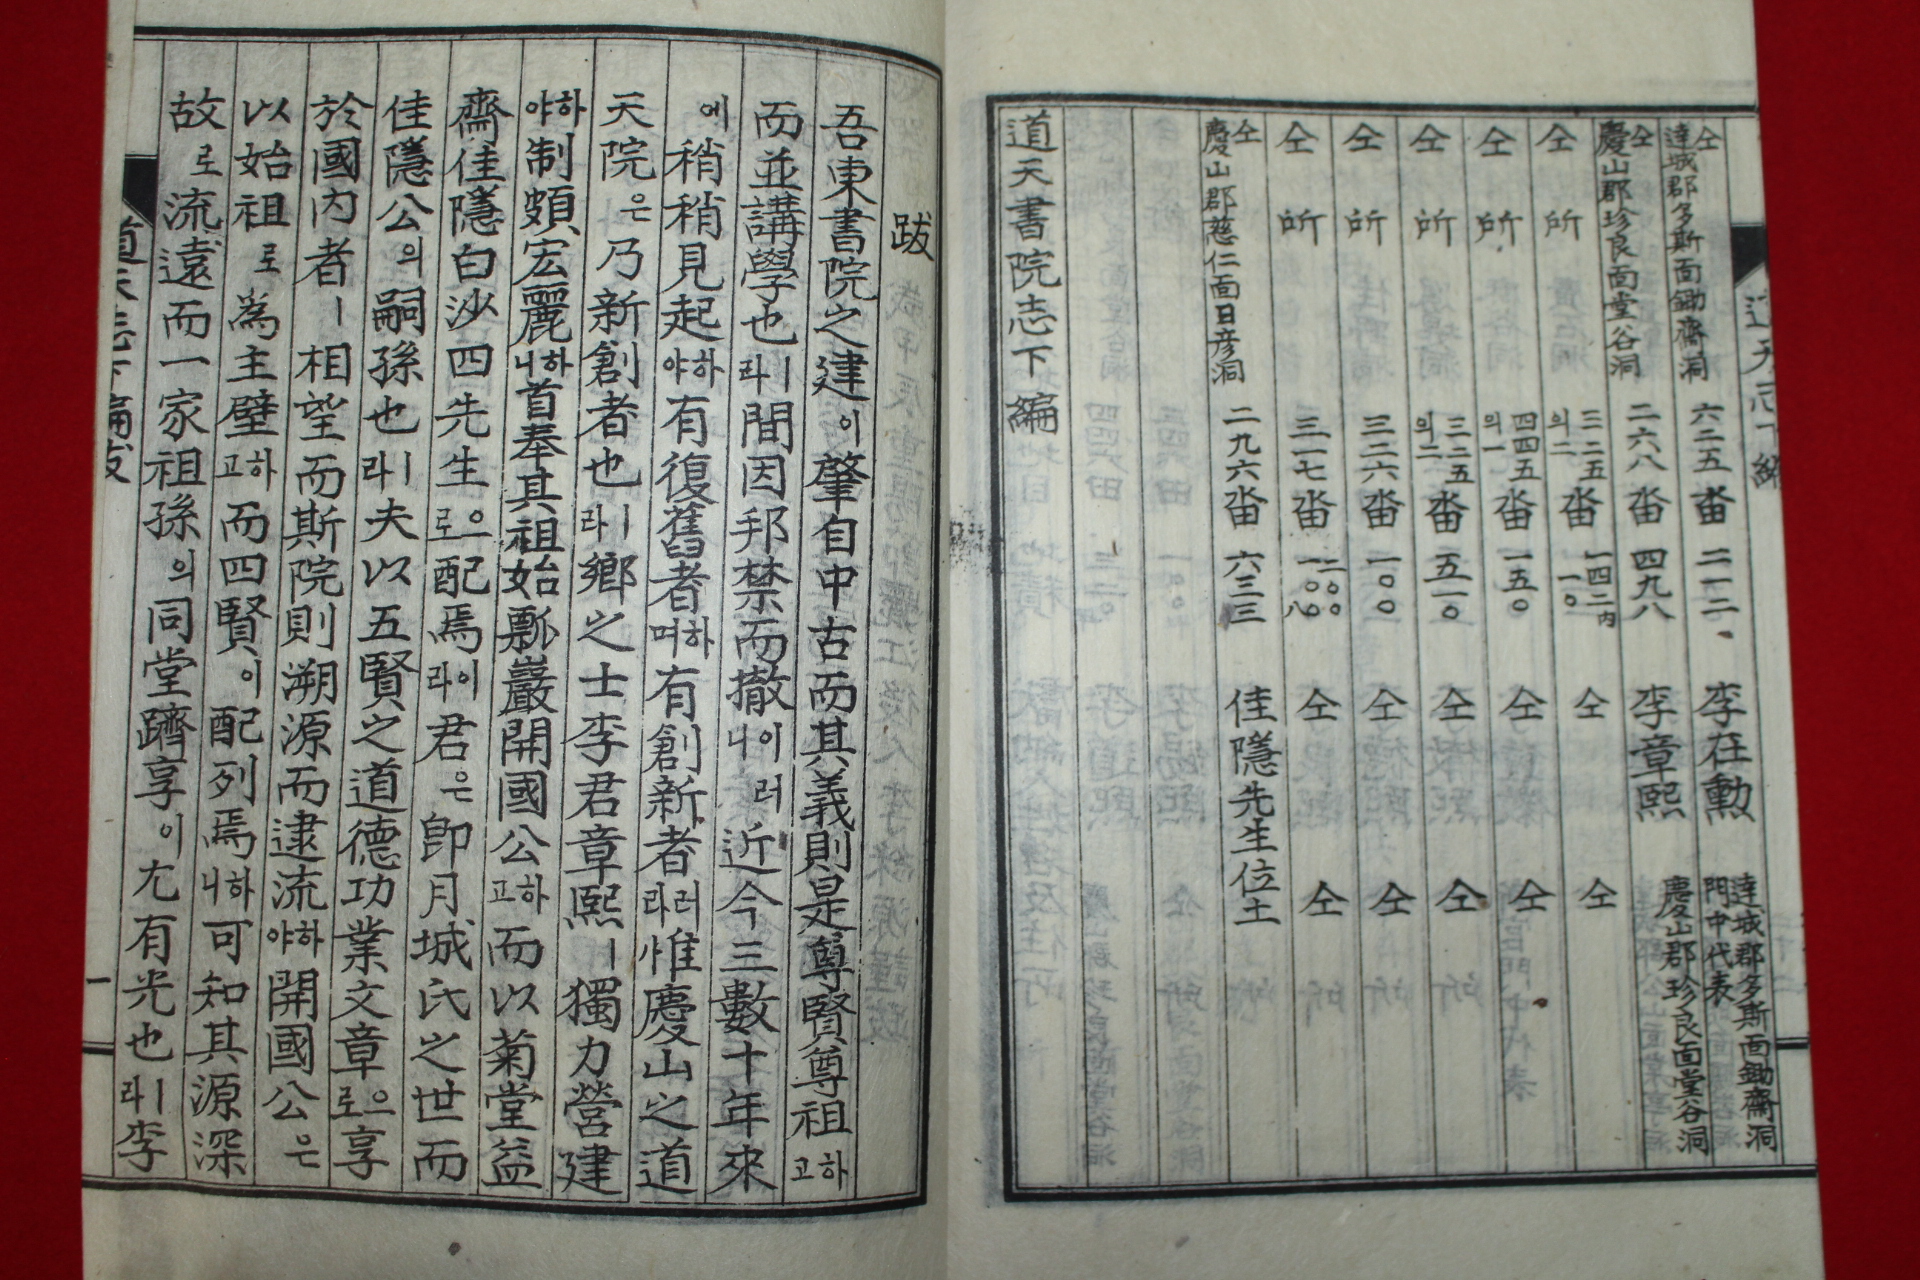 仝 達城郡多斯面鋤齋洞 六二五 畓 二一二 李在勳 達城郡多斯面鋤齋洞 門中代表
仝 慶山郡珍良面堂谷洞 二六八 畓 四九八 李章熙 慶山郡珍良面堂谷洞
仝 所 三二五의二 畓 一四二內一〇 仝 仝
仝 所 四四五의一 畓 一五〇 仝 仝
仝 所 三二五의二 畓 五一〇 仝 仝
仝 所 三二六 畓 一〇〇 仝 仝
仝 所 三一七 畓 二〇〇 一〇〇八 仝 仝
仝 慶山郡慈仁面日彦洞 二九六 畓 六三三 佳隱先生位土
道天書院志下編
跋
吾東書院之建이肇自中古而其義則是尊賢尊祖하고
而並講學也ㅣ라間因邦禁而撤이니이러近今三數十年來
에稍稍見起하야有復舊者하며有創新者러라惟慶山之道
天院은乃新創者也ㅣ라鄉之士李君章熙ㅣ獨力營建
하야制頗宏麗하니首奉其祖始瓢巖開國公하고而以菊堂益
齋佳隱白沙四先生으로配焉이라君은卽月城氏之世而
佳隱公의嗣孫也ㅣ라夫以五賢之道德功業文章으로享
於國內者ㅣ相望而斯院則溯源而逮流하야開國公은
以始祖로為主壁하고而四賢이配列焉하니可知其源深
故로流遠而一家祖孫의同堂躋享이尤有光也ㅣ라李
道天志下編跋
一